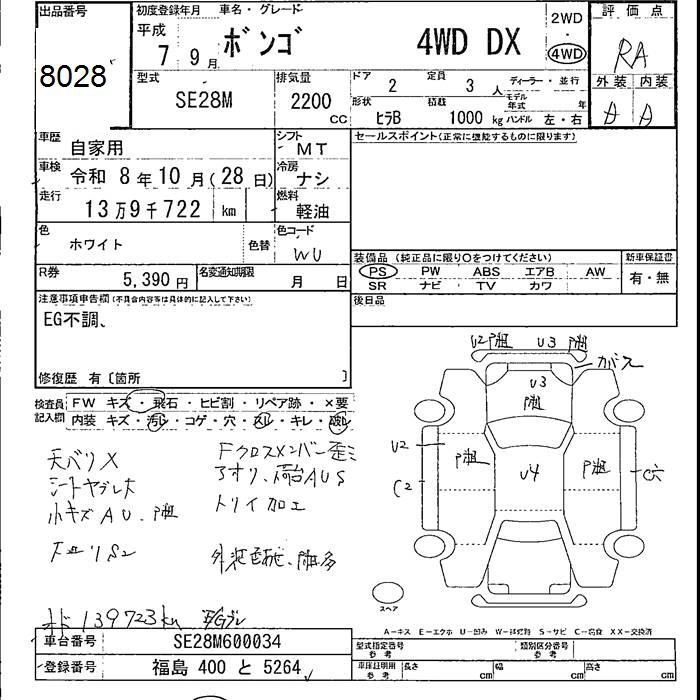 出品番号
8028
初度登録年月 車名・グレード
平成
7年 9月
ボンゴ 4WD DX
2WD
4WD
評価点
RA
外装 内装
A
型式
SE28M
排気量
2200 CC
ドア 2
定員 3人
ディーラー・並行
形状 ヒラB
積載 1000kg
モデル年式 年
ハンドル 左・右
車歴 自家用
シフト MT
車検 令和 8年10月(28日)
冷房 ナシ
走行 13万9千722 km
燃料 軽油
色 ホワイト
色替
色コード WU
R券 5,390円
名変通知期限 月 日
セールスポイント(正常に機能するものに限ります)
装備品(純正品に限り○をつけてください)
PS PW ABS エアB AW
SR ナビ TV カワ
新車保証書
有・無
後日品
注意事項申告欄(不具合内容等は具体的に記入して下さい)
EG不調、
修復歴 有〔箇所 〕
検査員記入欄
FW キズ・飛石・ヒビ割・リペア跡・×要
内装 キズ・汚レ・コゲ・穴・スレ・キレ・破レ
天バリ×
シートヤブレ大
小キズAU、
Fクロスメンバー歪ミ
アオリ、荷台AUS
トリイ加工
139723km
U2 U3
ガラス
U3
U2
C2
U4
C穴
スペア
A-キズ E-エクボ U-凹み W-補修跡 S-サビ C-腐食 XX-交換済
車台番号 SE28M600034
登録番号 福島 400 と 5264
型式指定番号 参考
類別区分番号 参考
車庫証明用 参考
長さ cm
幅 cm
高さ cm